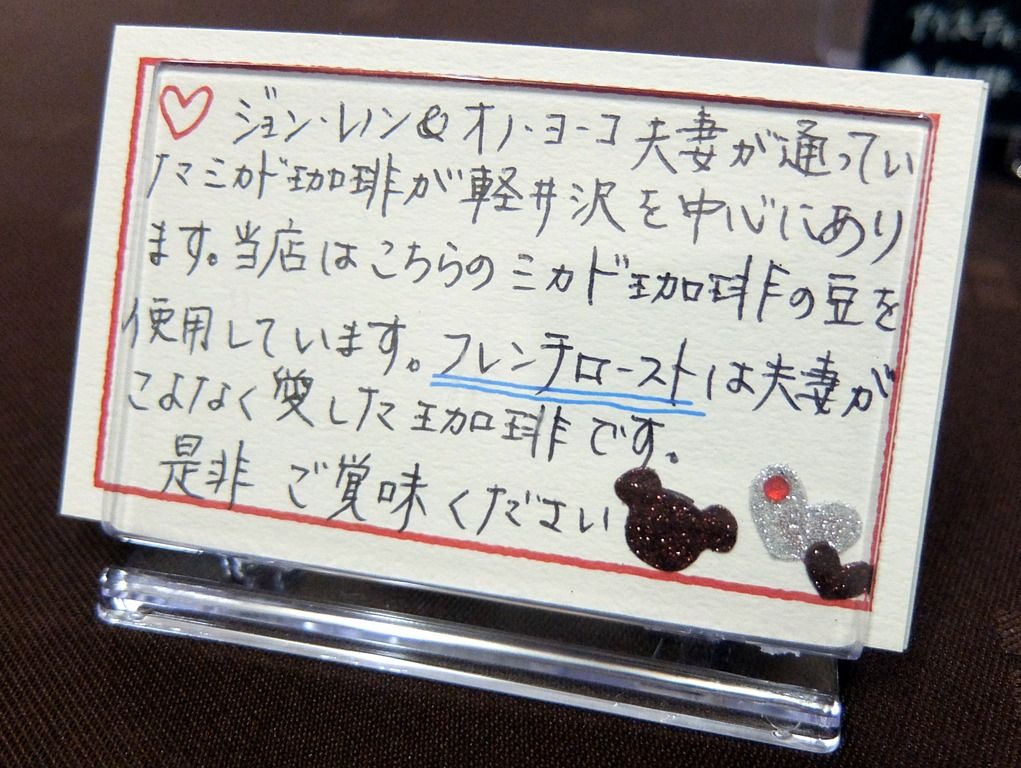 ジョン・レノン&オノ・ヨーコ夫妻が通ってい
たミカド珈琲が軽井沢を中心にあり
ます。当店はこちらのミカド珈琲の豆を
使用しています。フレンチローストは夫妻が
こよなく愛した珈琲です。
是非ご賞味ください